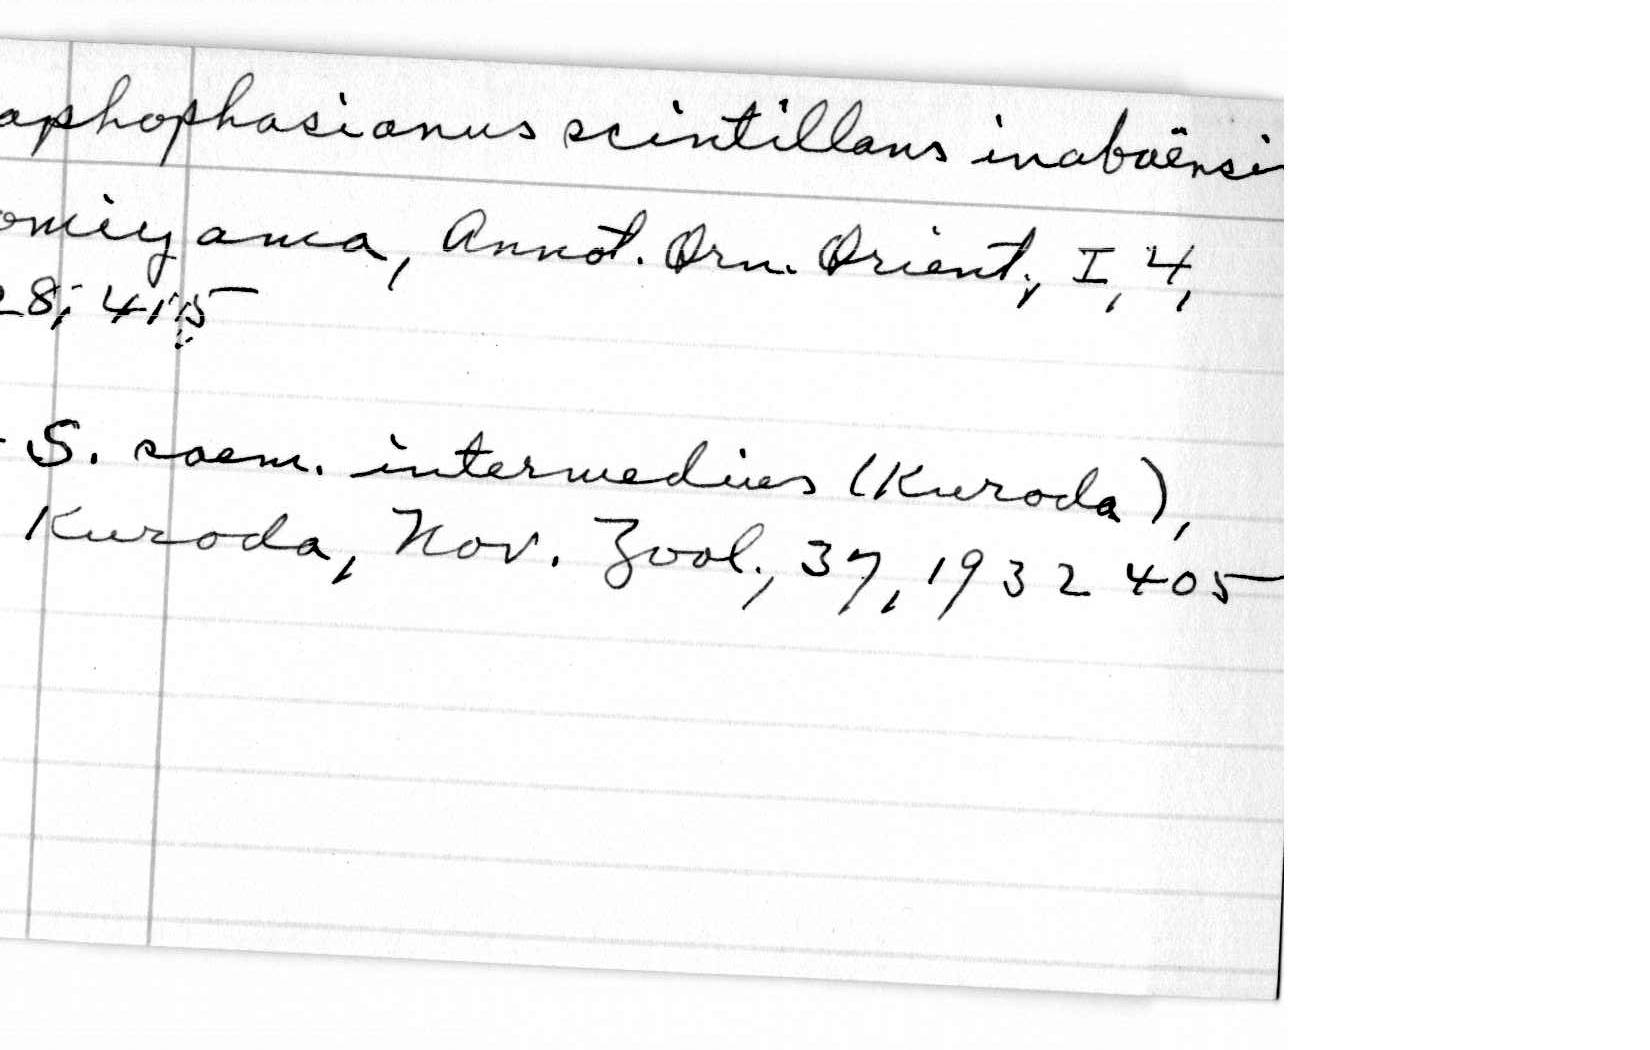 aphophasianus scintillans inabaënsi
omiyama, Annot. Orn. Orient., I, 4,
28; 415
S. soem. intermedius (Kuroda),
Kuroda, Nov. Zool., 37, 1932 405